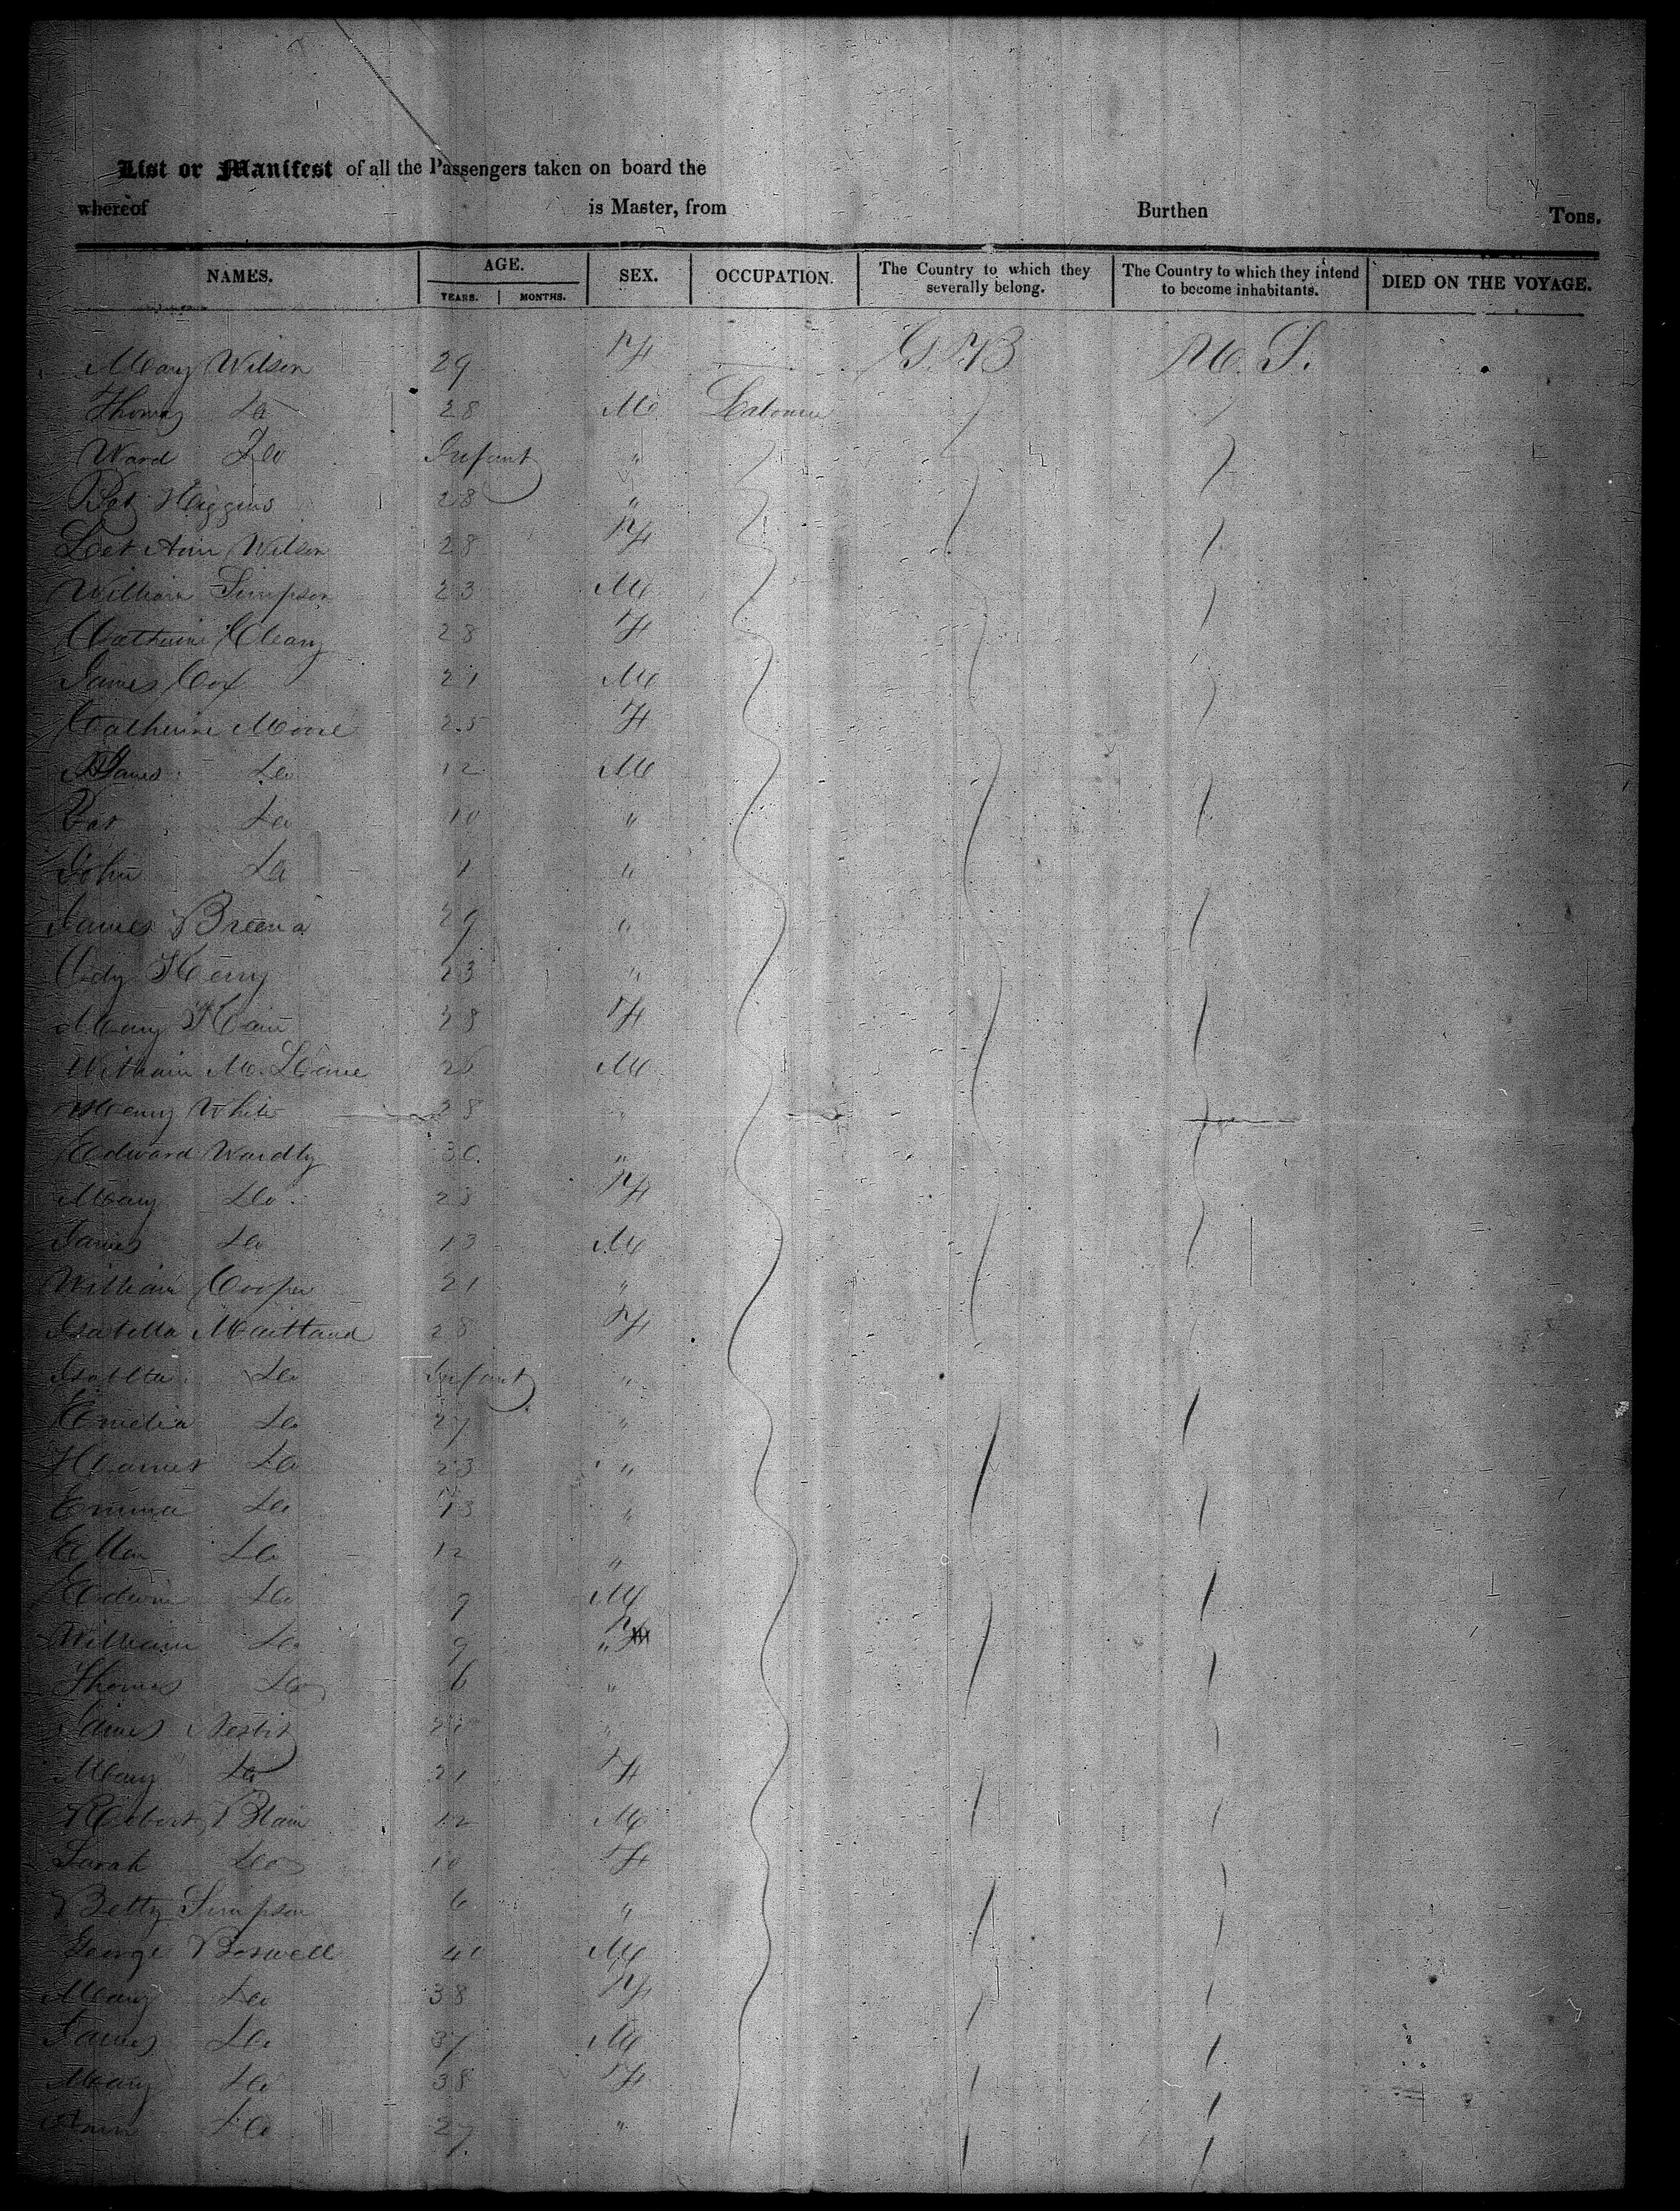 List or Manifest of all the Passengers taken on board the
whereof is Master, from Burthen Tons.
NAMES. AGE. SEX. OCCUPATION. The Country to which they severally belong. The Country to which they intend to become inhabitants. DIED ON THE VOYAGE.
YEARS. MONTHS.
Mary Wilson 29 F G. B U. S.
Thomas Do 28 M Labourer
Ward Do Infant "
Pat Higgins 28 "
Ann Wilson 28 F
William Simpson 23 M
Catherine Cleary 28 F
James Cox 21 M
Catherine Moore 25 F
James Do 12 M
Pat Do 10 "
John Do 1 "
James 29 "
23 "
Mary 38 F
William M. 26 M
Henry White 28 "
Edward Wardly 30 "
Mary Do 28 F
James Do 13 M
William Cooper 21 "
Isabella Maitland 28 F
Isabella Do Infant "
Emelia Do 27 "
Harriet Do 23 "
Emma Do 13 "
Ellen Do 12 "
Edwin Do 9 M
William Do 9 "
Thomas Do 6 "
James Nesbit "
Mary Do 21 F
Robert Blain 12 M
Sarah Do 10 F
Betty Simpson 6 "
George Boswell 40 M
Mary Do 38 F
James Do 37 M
Mary Do 38 F
Ann Do 27 "